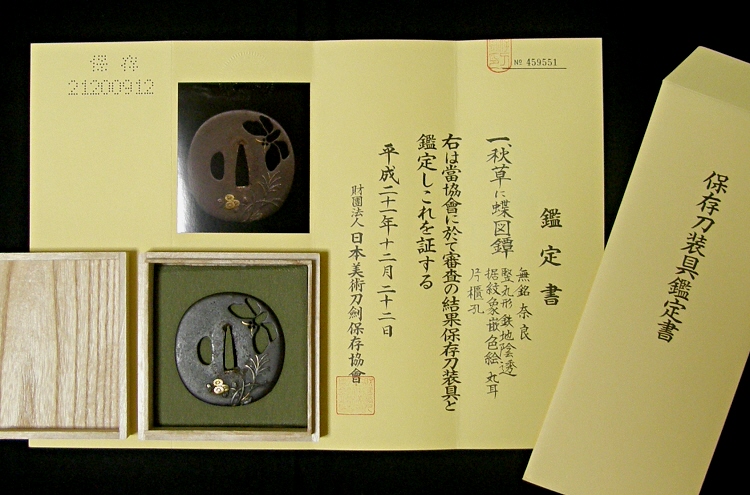 保存
21200912
№ 459551
鑑定書
一、秋草に蝶図鐔
無銘 奈良
竪丸形 鉄地 陰透
据紋象嵌色絵 丸耳
片櫃孔
右は當協會に於て審査の結果保存刀装具と
鑑定しこれを証する
平成二十一年十二月二十二日
財團法人 日本美術刀劍保存協會
保存刀装具鑑定書